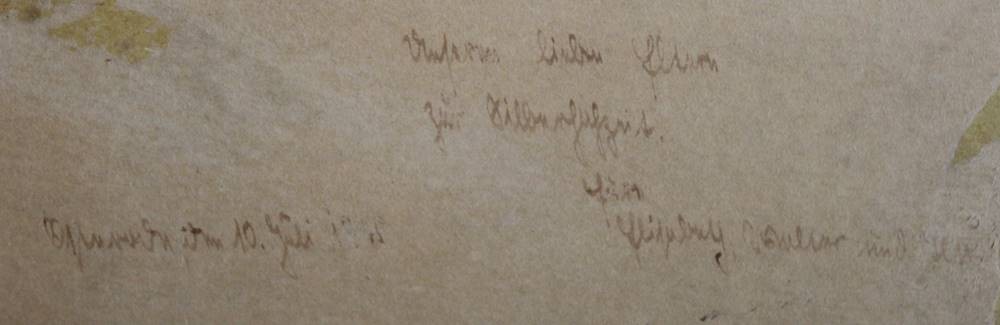 Unseren lieben Eltern
zur Silberhochzeit.
Eure
Elisabeth, Walter und
den 10. Juli